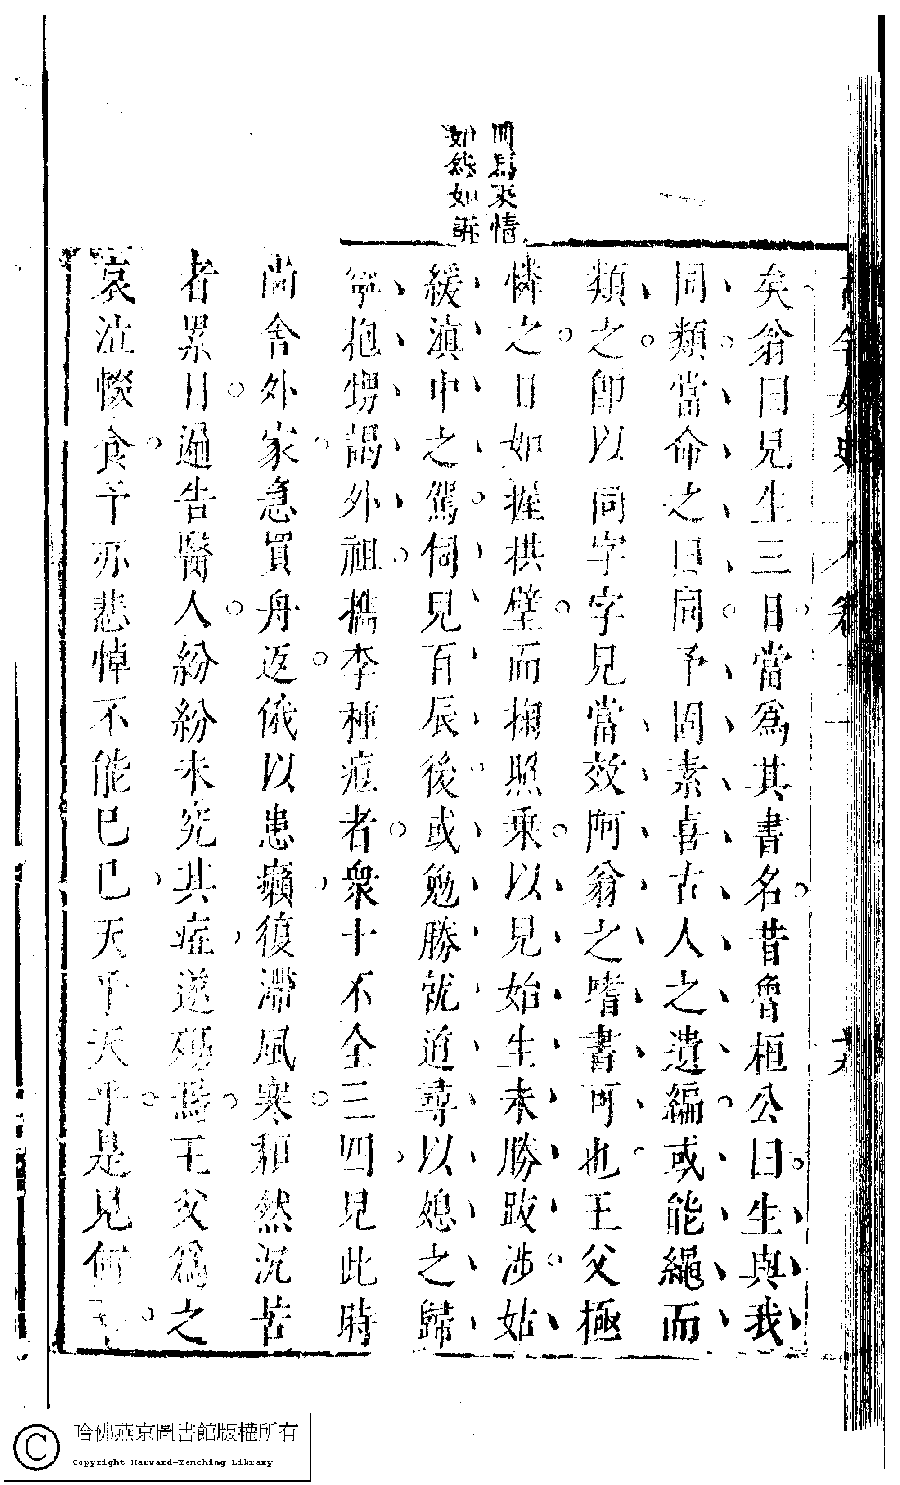 今女史
矣翁曰兒生三日當爲其書名昔魯桓公曰生與我
同類當命之曰同予固素喜古人之遺編或能繩而
類之卽以同字字兒當效阿翁之嗜書可也王父極
憐之日如握拱璧而掬照乘以兒始生未勝跋涉姑
緩滇中之駕伺兒百辰後或勉勝就道尋以媳之歸
寧抱甥謁外祖檇李種痘者衆十不全三四兒此時
尚舍外家急買舟返俄以患癩復滯風寒和然沉苦
者累日過告醫人紛紛未究其症遂殤焉王父爲之
哀泣惙食予亦悲悼不能巳巳天乎天乎是兒何
哈佛燕京圖書館版權所有
Copyright Harvard-Yenching Library